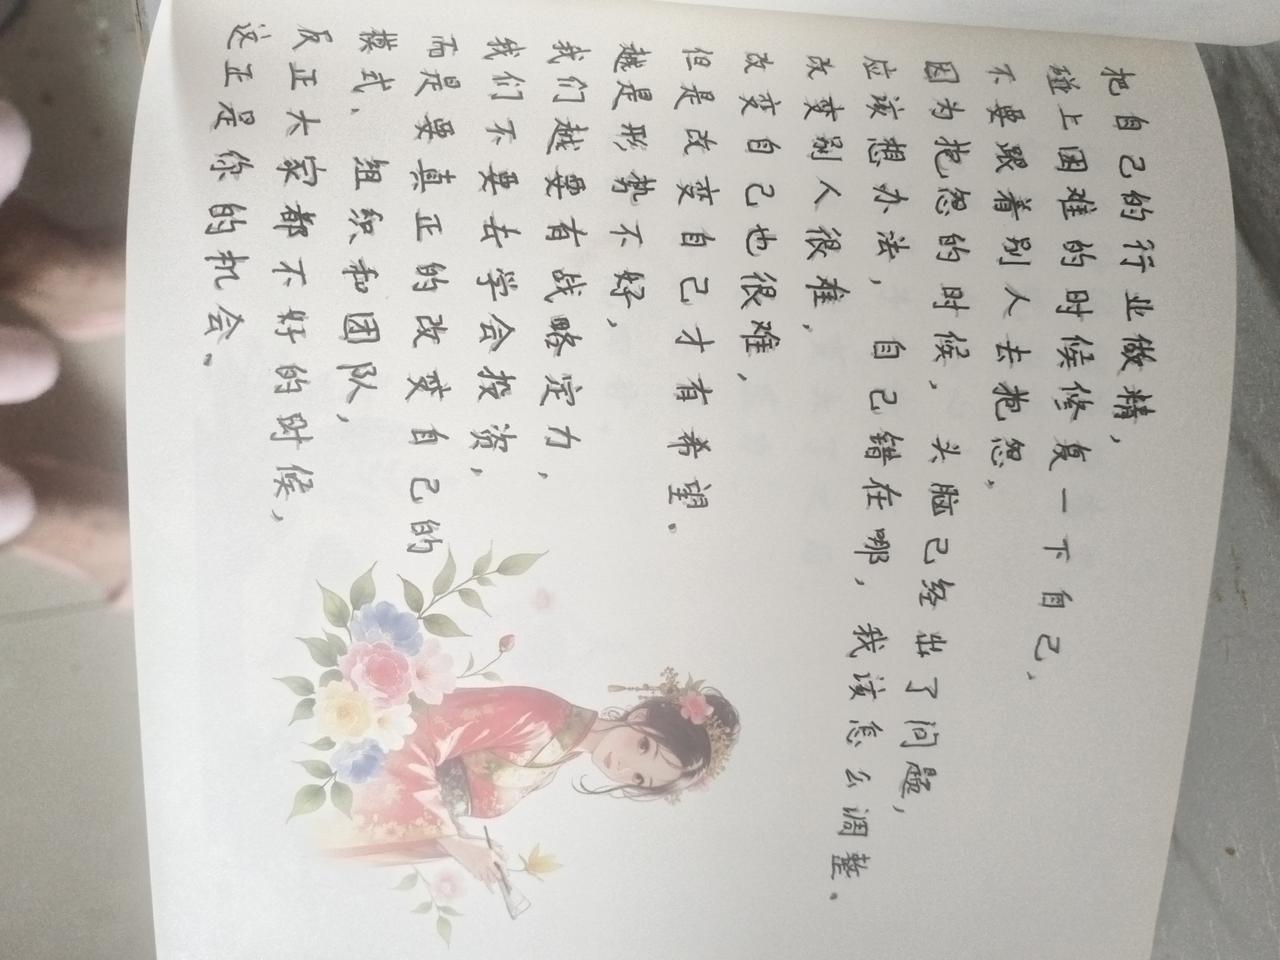 把自己的行业做精，
碰上困难的时候修复一下自己，
不要跟着别人去抱怨。
因为抱怨的时候，头脑已经出了问题，
应该想办法，自己错在哪，我该怎么调整。
改变别人很难，
改变自己也很难，
但是改变自己才有希望。
越是形势不好，
我们越要有战略定力，
我们不要去学会投资，
而是要真正的改变自己的
模式、组织和团队，
反正大家都不好的时候，
这正是你的机会。